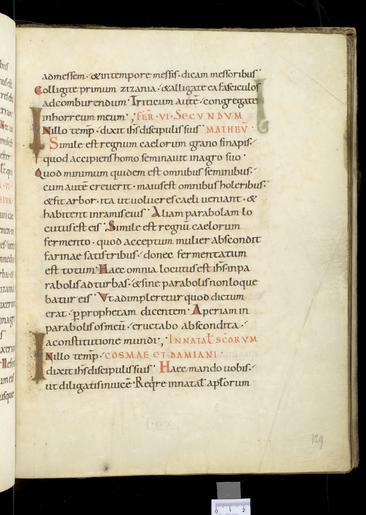 admessem · & intempore messis · dicam messoribus ·
Colligite primum zizania · & alligate ea fasciculos
ad comburendum · Triticum autē · congregate
inhorreum meum ; FER · VI · SECUNDUM
In illo tēmp · dixit ihs discipulis suis MATHEŪ
Simile est regnum caelorum grano sinapis ·
quod accipiens homo seminauit inagro suo ·
Quod minimum quidem est omnibus seminibus ·
cum autē creuerit · maius est omnibus holeribus ·
& fit arbor · ita ut uolucres caeli ueniant · &
habitent inramis eius · Aliam parabolam lo
cutus est eis · Simile est regnū caelorum
fermento · quod acceptum mulier abscondit
farinae satis tribus · donec fermentatum
est totum · Haec omnia locutus est ihs inpa
rabolis ad turbas · & sine parabolis non loque
batur eis · Ut adimpleretur quod dictum
erat · p prophetam dicentem · Aperiam in
parabolis os meū · eructabo abscondita ·
a constitutione mundi ; IN NATAL SCORUM
In illo temp · COSMAE ET DAMIANI ·
dixit ihs discipulis suis · Haec mando uobis ·
ut diligatis inuicē · Reqre innatal aplorum
129